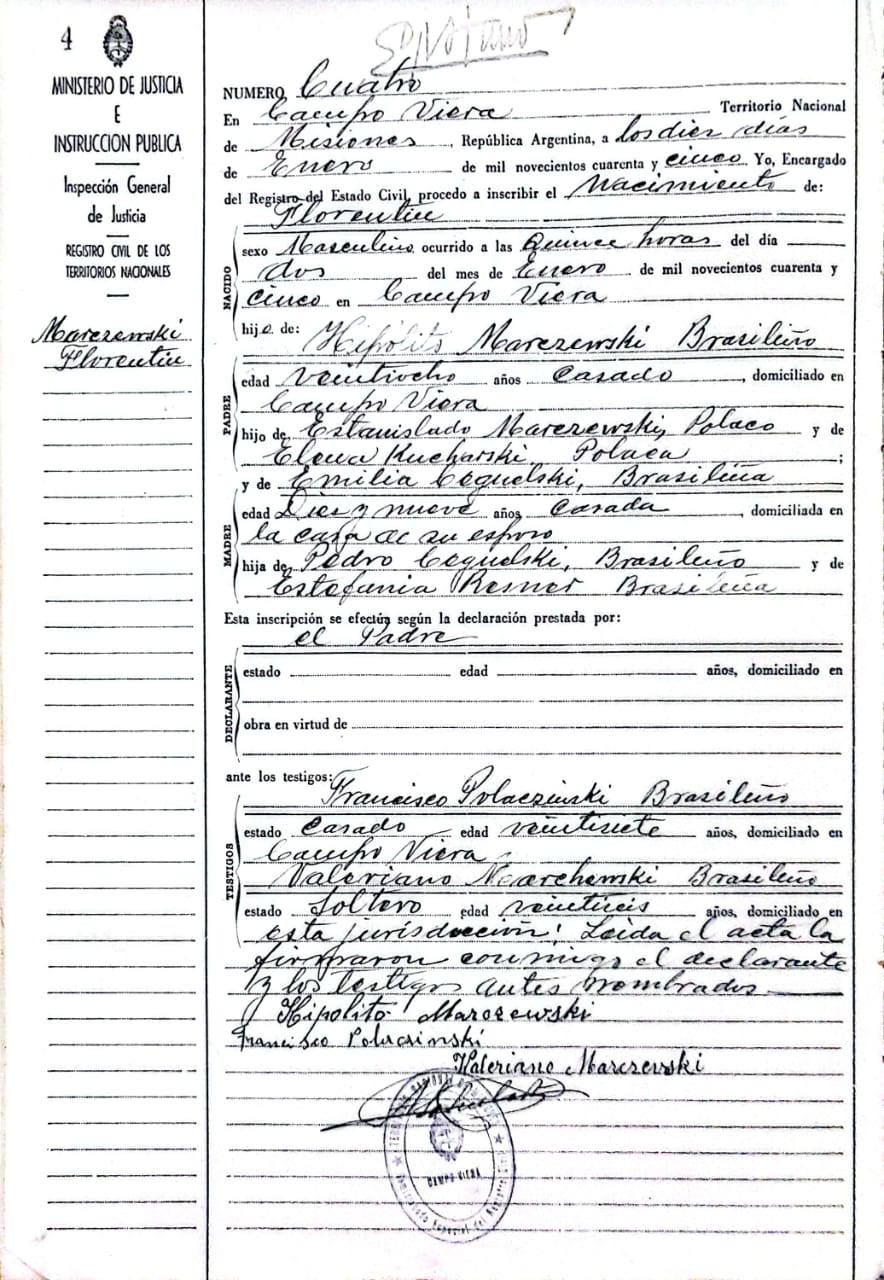 4
MINISTERIO DE JUSTICIA
E
INSTRUCCION PUBLICA
Inspección General
de Justicia
REGISTRO CIVIL DE LOS
TERRITORIOS NACIONALES
Marczewski
Florentin
NUMERO Cuatro
En Campo Viera Territorio Nacional
de Misiones, República Argentina, a los diez días
de Enero de mil novecientos cuarenta y cinco Yo, Encargado
del Registro del Estado Civil, procedo a inscribir el Nacimiento de:
Florentin
NACIDO
sexo Masculino ocurrido a las Quince horas del día
dos del mes de Enero de mil novecientos cuarenta y
cinco en Campo Viera
hijo de: Hipólito Marczewski Brasileño
PADRE
edad veintiocho años Casado, domiciliado en
Campo Viera
hijo de Estanislado Marczewski, Polaco y de
Elena Kucharski Polaca;
y de Emilia Coguelski, Brasileña
MADRE
edad Diez y nueve años, Casada, domiciliada en
la casa de su esposo
hija de Pedro Coguelski, Brasileño y de
Estefania Resner Brasileña
Esta inscripción se efectúa según la declaración prestada por:
el Padre
DECLARANTE
estado edad años, domiciliado en
obra en virtud de
ante los testigos:
Francisco Polaczinski Brasileño
TESTIGOS
estado Casado edad veintisiete años, domiciliado en
Campo Viera
Valeriano Marchewski Brasileño
estado Soltero edad años, domiciliado en
esta Leida el acta la
firmaron conmigo el declarante
y los testigos antes nombrados
Hipolito Marczewski
Francisco Polacsinski
Valeriano Marczewski
CAMPO VIERA